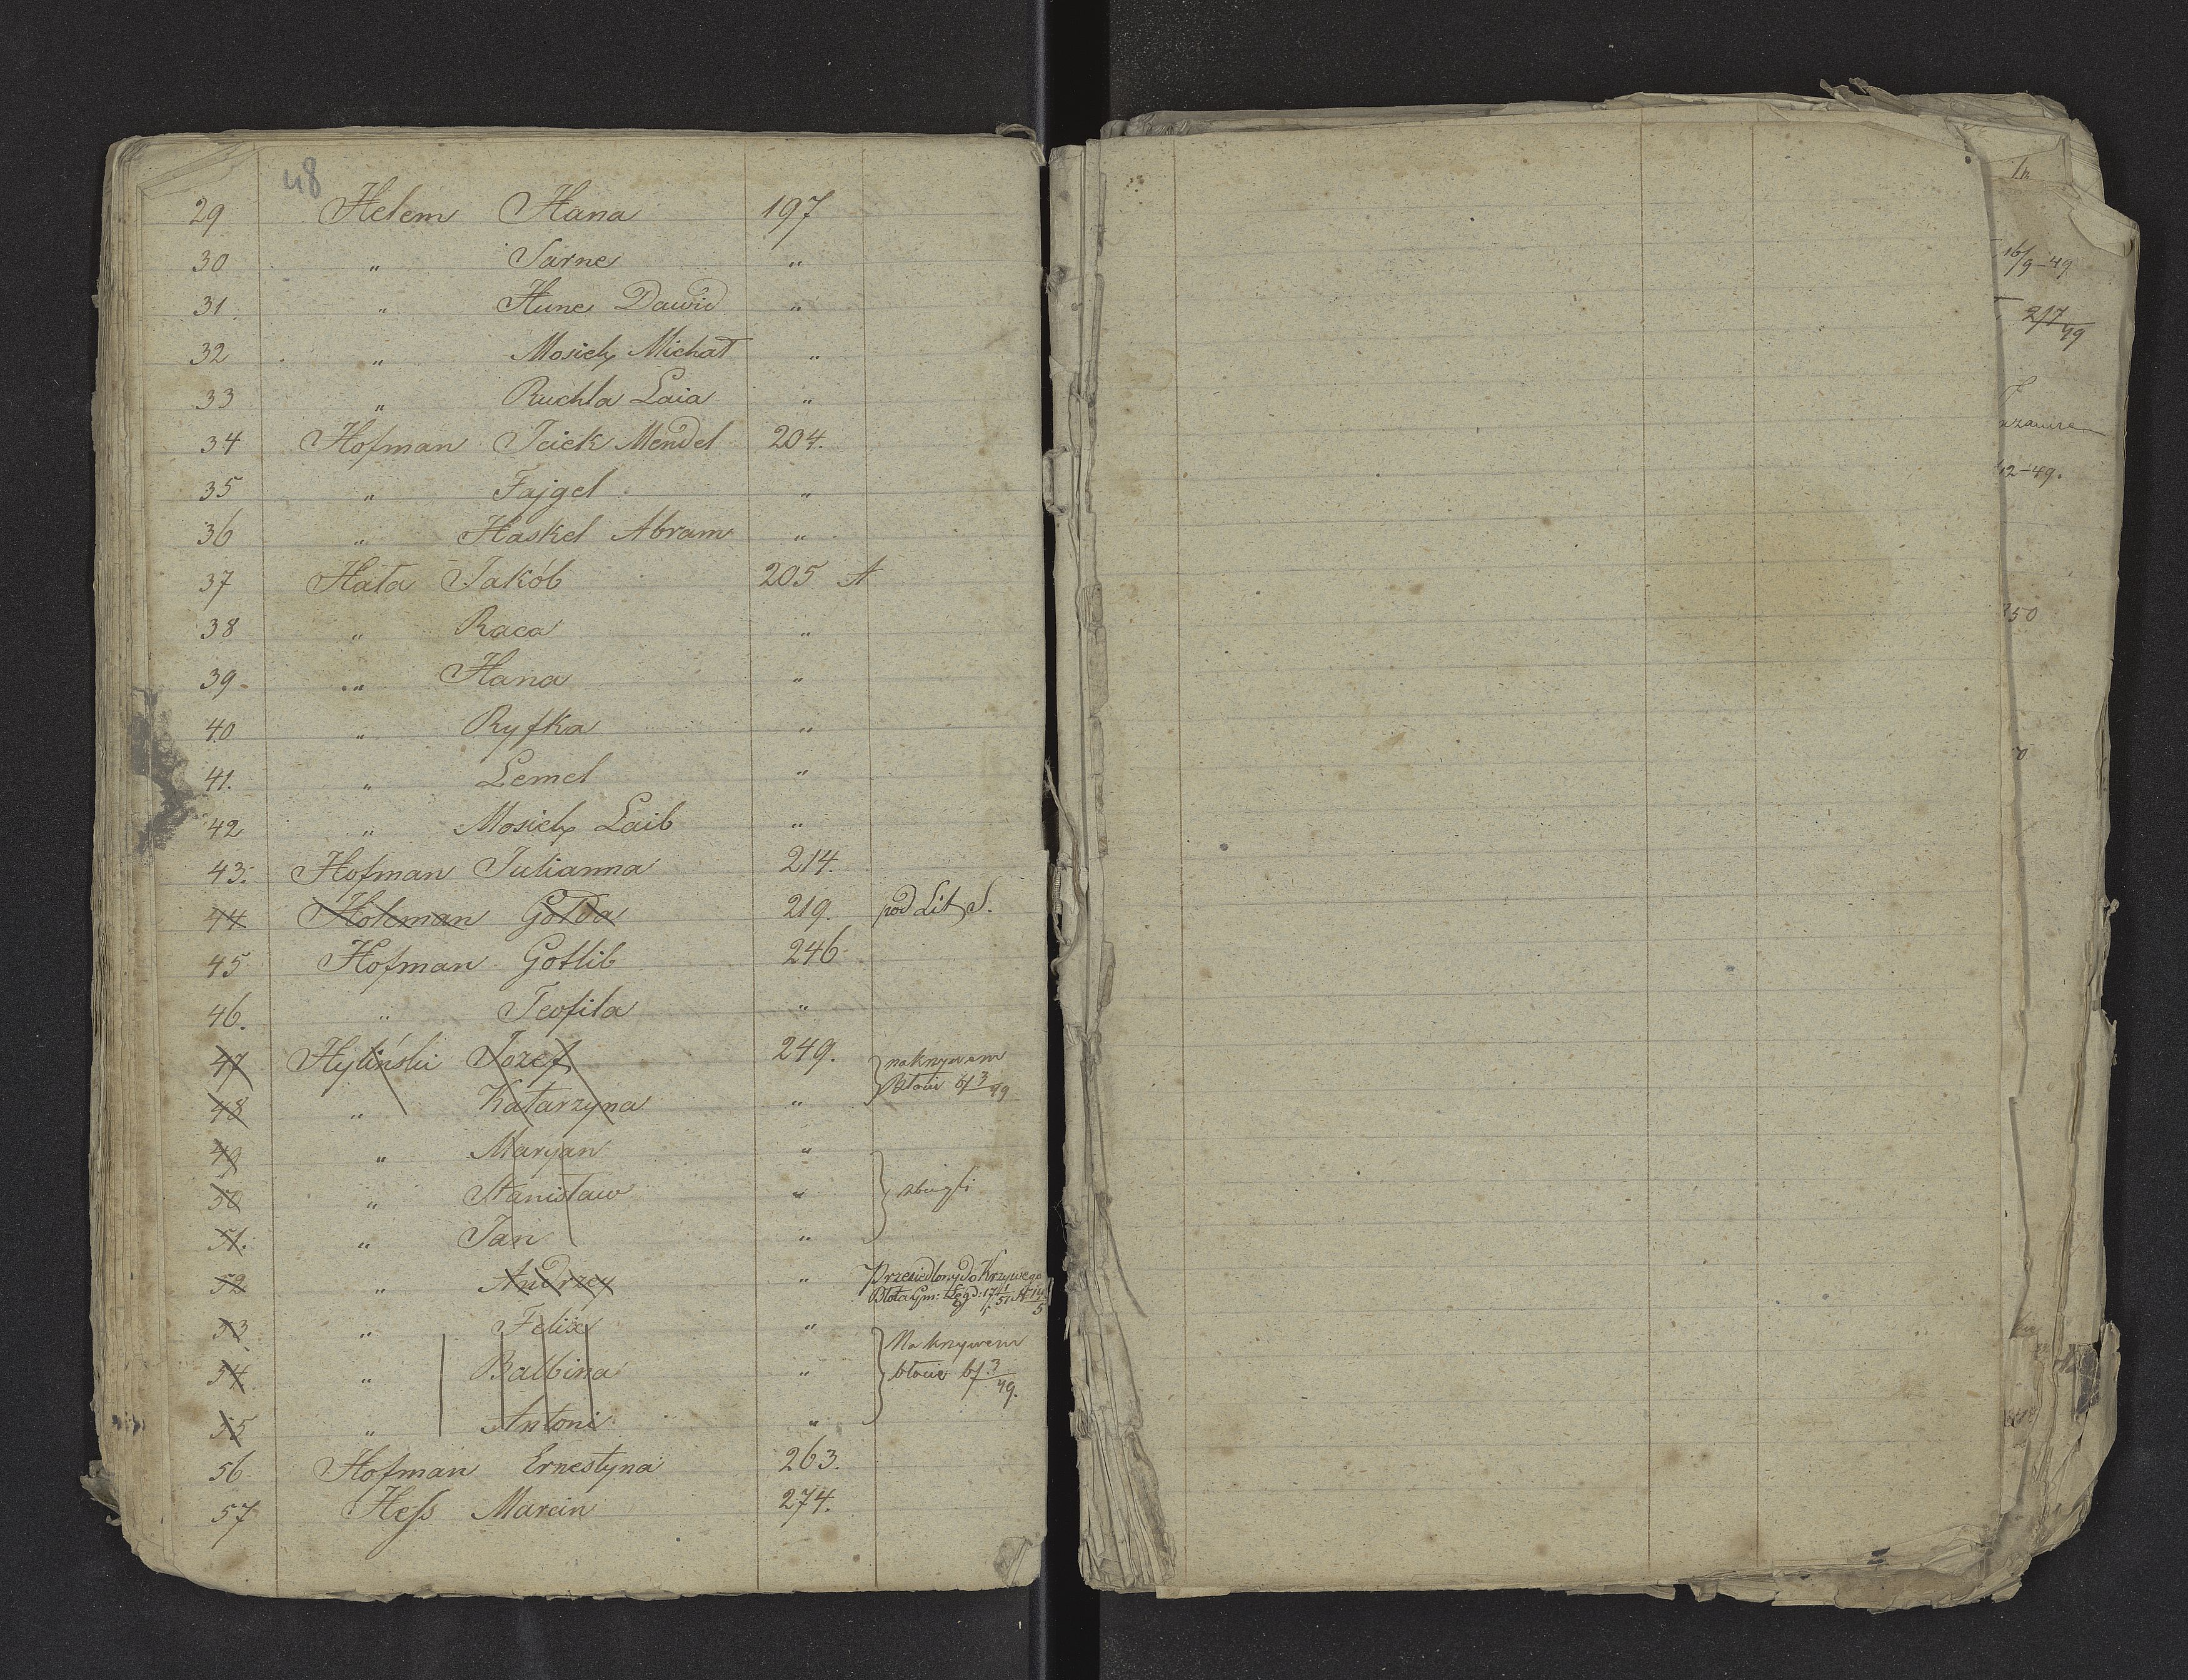 48
29 Helem Hana 197
30 " Sarne "
31 " Hune Dawid "
32 " Mosiek Michał "
33 " Ruchla Laia "
34 Hofman Icick Mendel 204.
35 " Fajgel "
36 " Haskel Abram "
37 Hała Jakób 205 A
38 " Raca "
39 " Hana "
40 " Ryfka "
41. " Lemel "
42 " Mosiek Laib "
43. Hofman Julianna 214.
44 Holcman Golda 219. pod Lit S.
45 Hofman Gotlib 246
46. " Teofila "
47 Hyliński Józef 249. na krzywem
48 " Katarzyna " Błocie 6/3 49
49 " Maryan "
50 " Stanisław " zbiegli
51. " Jan "
52 " Andrzey " Przesiedlony do Krzywego
Błota Gm:
53 " Felix "
54 " Balbina " Na krzywem
błocie 6/3 49.
55 " Antoni "
56 Hofman Ernestyna 263.
57 Heſs Marcin 274.
16/9-49
2/7 49
12-49.
50